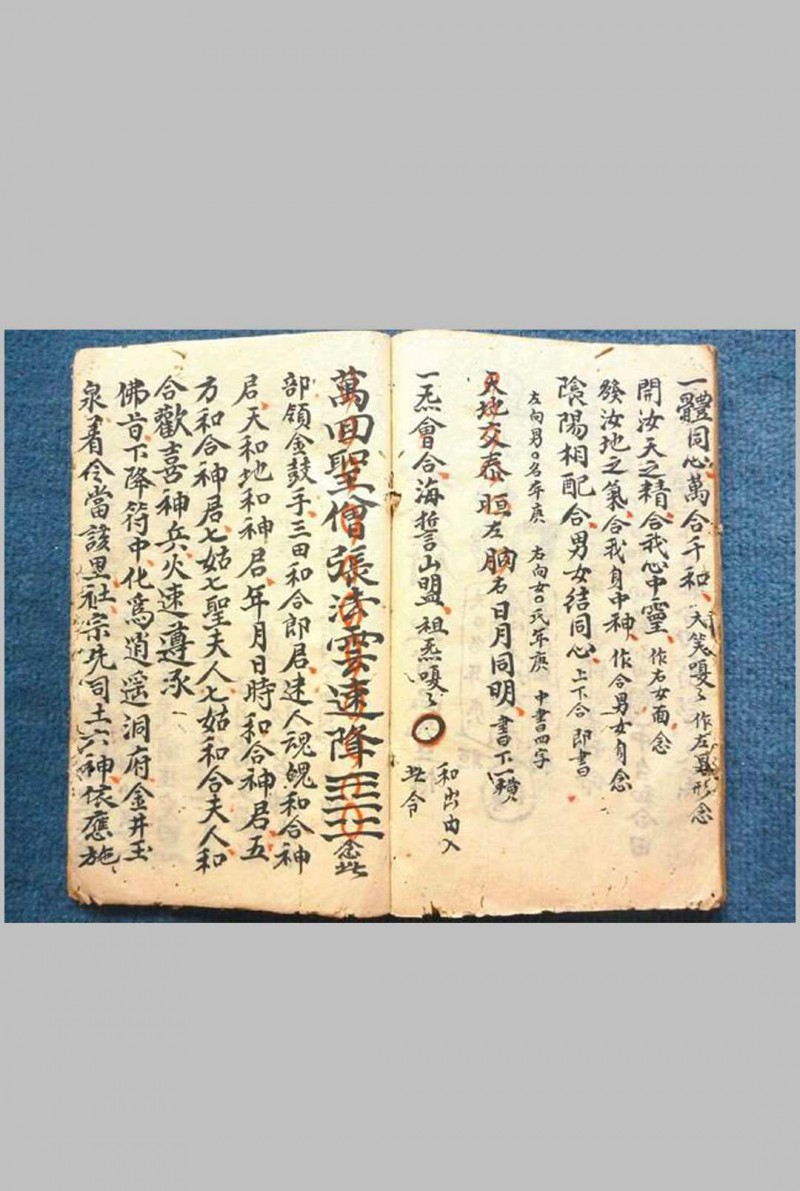 一體同心萬合千和大笑嗄〻作左男形念
開汝天之精合我心中靈作右女面念
發汝地之氣合我身中神作合男女身念
陰陽相配合男女結同心上下合即書
左向男〇名年庚 右向女〇氏年庚 中書四字
天地交泰 左 右日月同明書下一横
一炁會合海誓山盟祖炁嗄〻〇
和出內入
井令
萬回聖僧張法雲速降三三三念此
部領金鼓手三田和合郎君迷人魂魄和合神
君天和地和神君年月日時和合神君五
方和合神君七姑七聖夫人七姑和合夫人和
合歡喜神兵火速遵承一
佛旨下降符中化爲逍遥洞府金井玉
泉着令當該里社宗先司土六神依應施